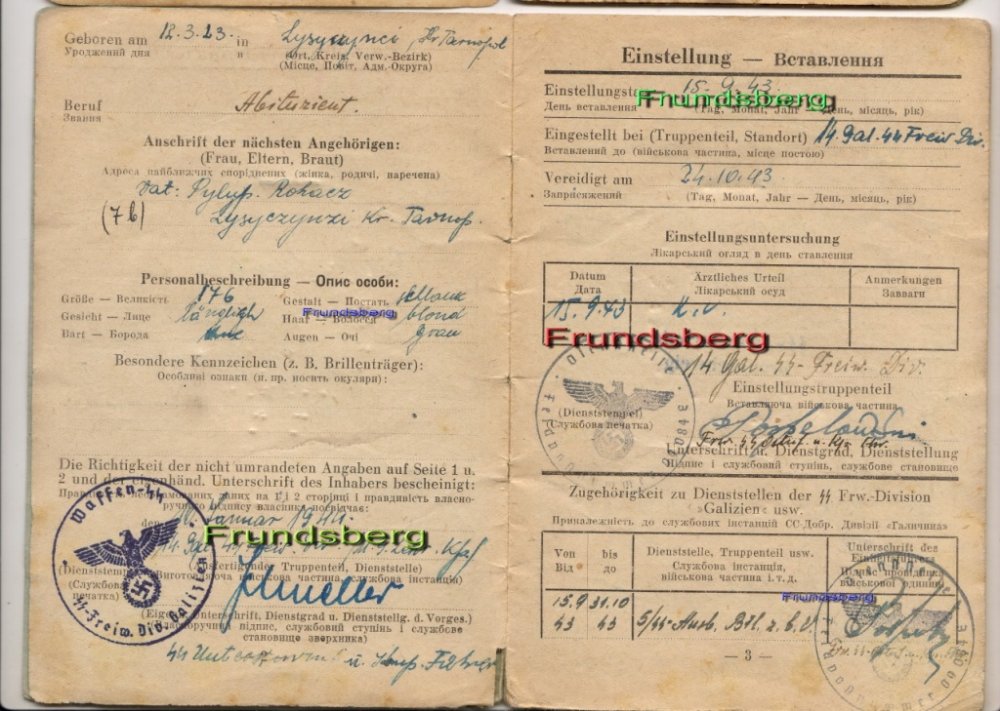 Geboren am 12.3.23. in Lysyczynci, Kr. Tarnopol
Уроджений дня в (Ort, Kreis, Verw.-Bezirk)
(Місце, Повіт, Адм.-Округа)
Beruf Abiturient.
Звания
Anschrift der nächsten Angehörigen:
(Frau, Eltern, Braut)
Адреса найближчих споріднених (жінка, родичі, наречена)
Vat: Pylyp Rohacz
(7b) Lysyczynzi Kr. Tarnop.
Personalbeschreibung — Опис особи:
Größe — Великість 176 Gestalt — Постать schlank
Gesicht — Лице länglich Haar — Волосся blond
Frundsberg
Bart — Борода Augen — Очі grau
Besondere Kennzeichen (z. B. Brillenträger):
Особливі ознаки (н. пр. носить окуляри):
Die Richtigkeit der nicht umrandeten Angaben auf Seite 1 u.
2 und der Unterschrift des Inhabers bescheinigt:
Januar
Frundsberg
(Dienststempel)
(Службова печатка)
Waffen-SS
SS-Freiw. Div. Galizien
(Eigenh. Unterschrift, Dienstgrad u. Dienststellg. d. Vorges.)
підпис, службовий ступінь і службове
становище зверхника)
Einstellung — Вставлення
Einstellungstag 15.9.43.
День вставлення (Tag, Monat, Jahr — День, місяць, рік)
Frundsberg
Eingestellt bei (Truppenteil, Standort) 14 Gal. SS Freiw Div.
Вставлений до (військова частина, місце постою)
Vereidigt am 24.10.43.
Заприсяжений (Tag, Monat, Jahr — День, місяць, рік)
Einstellungsuntersuchung
Лікарський огляд в день ставлення
Datum Ärztliches Urteil Anmerkungen
Дата Лікарський осуд Завваги
15.9.43 k.v.
Frundsberg
14 Gal. SS-Freiw. Div.
Einstellungstruppenteil
Вставляюча військова частина
(Dienststempel)
(Службова печатка)
Unterschrift u. Dienstgrad, Dienststellung
Підпис і службовий ступінь, службове становище
Zugehörigkeit zu Dienststellen der SS Frw.-Division
„Galizien“ usw.
Приналежність до службових інстанцій СС-Добр. Дивізії «Галичина»
Von bis Dienststelle, Truppenteil usw. Unterschrift des
Від до Службова інстанція,
військова частина і т. д.
Frundsberg
15.9 31.10
43 43 5/SS-Ausb. Btl. z.b.V.
— 3 —